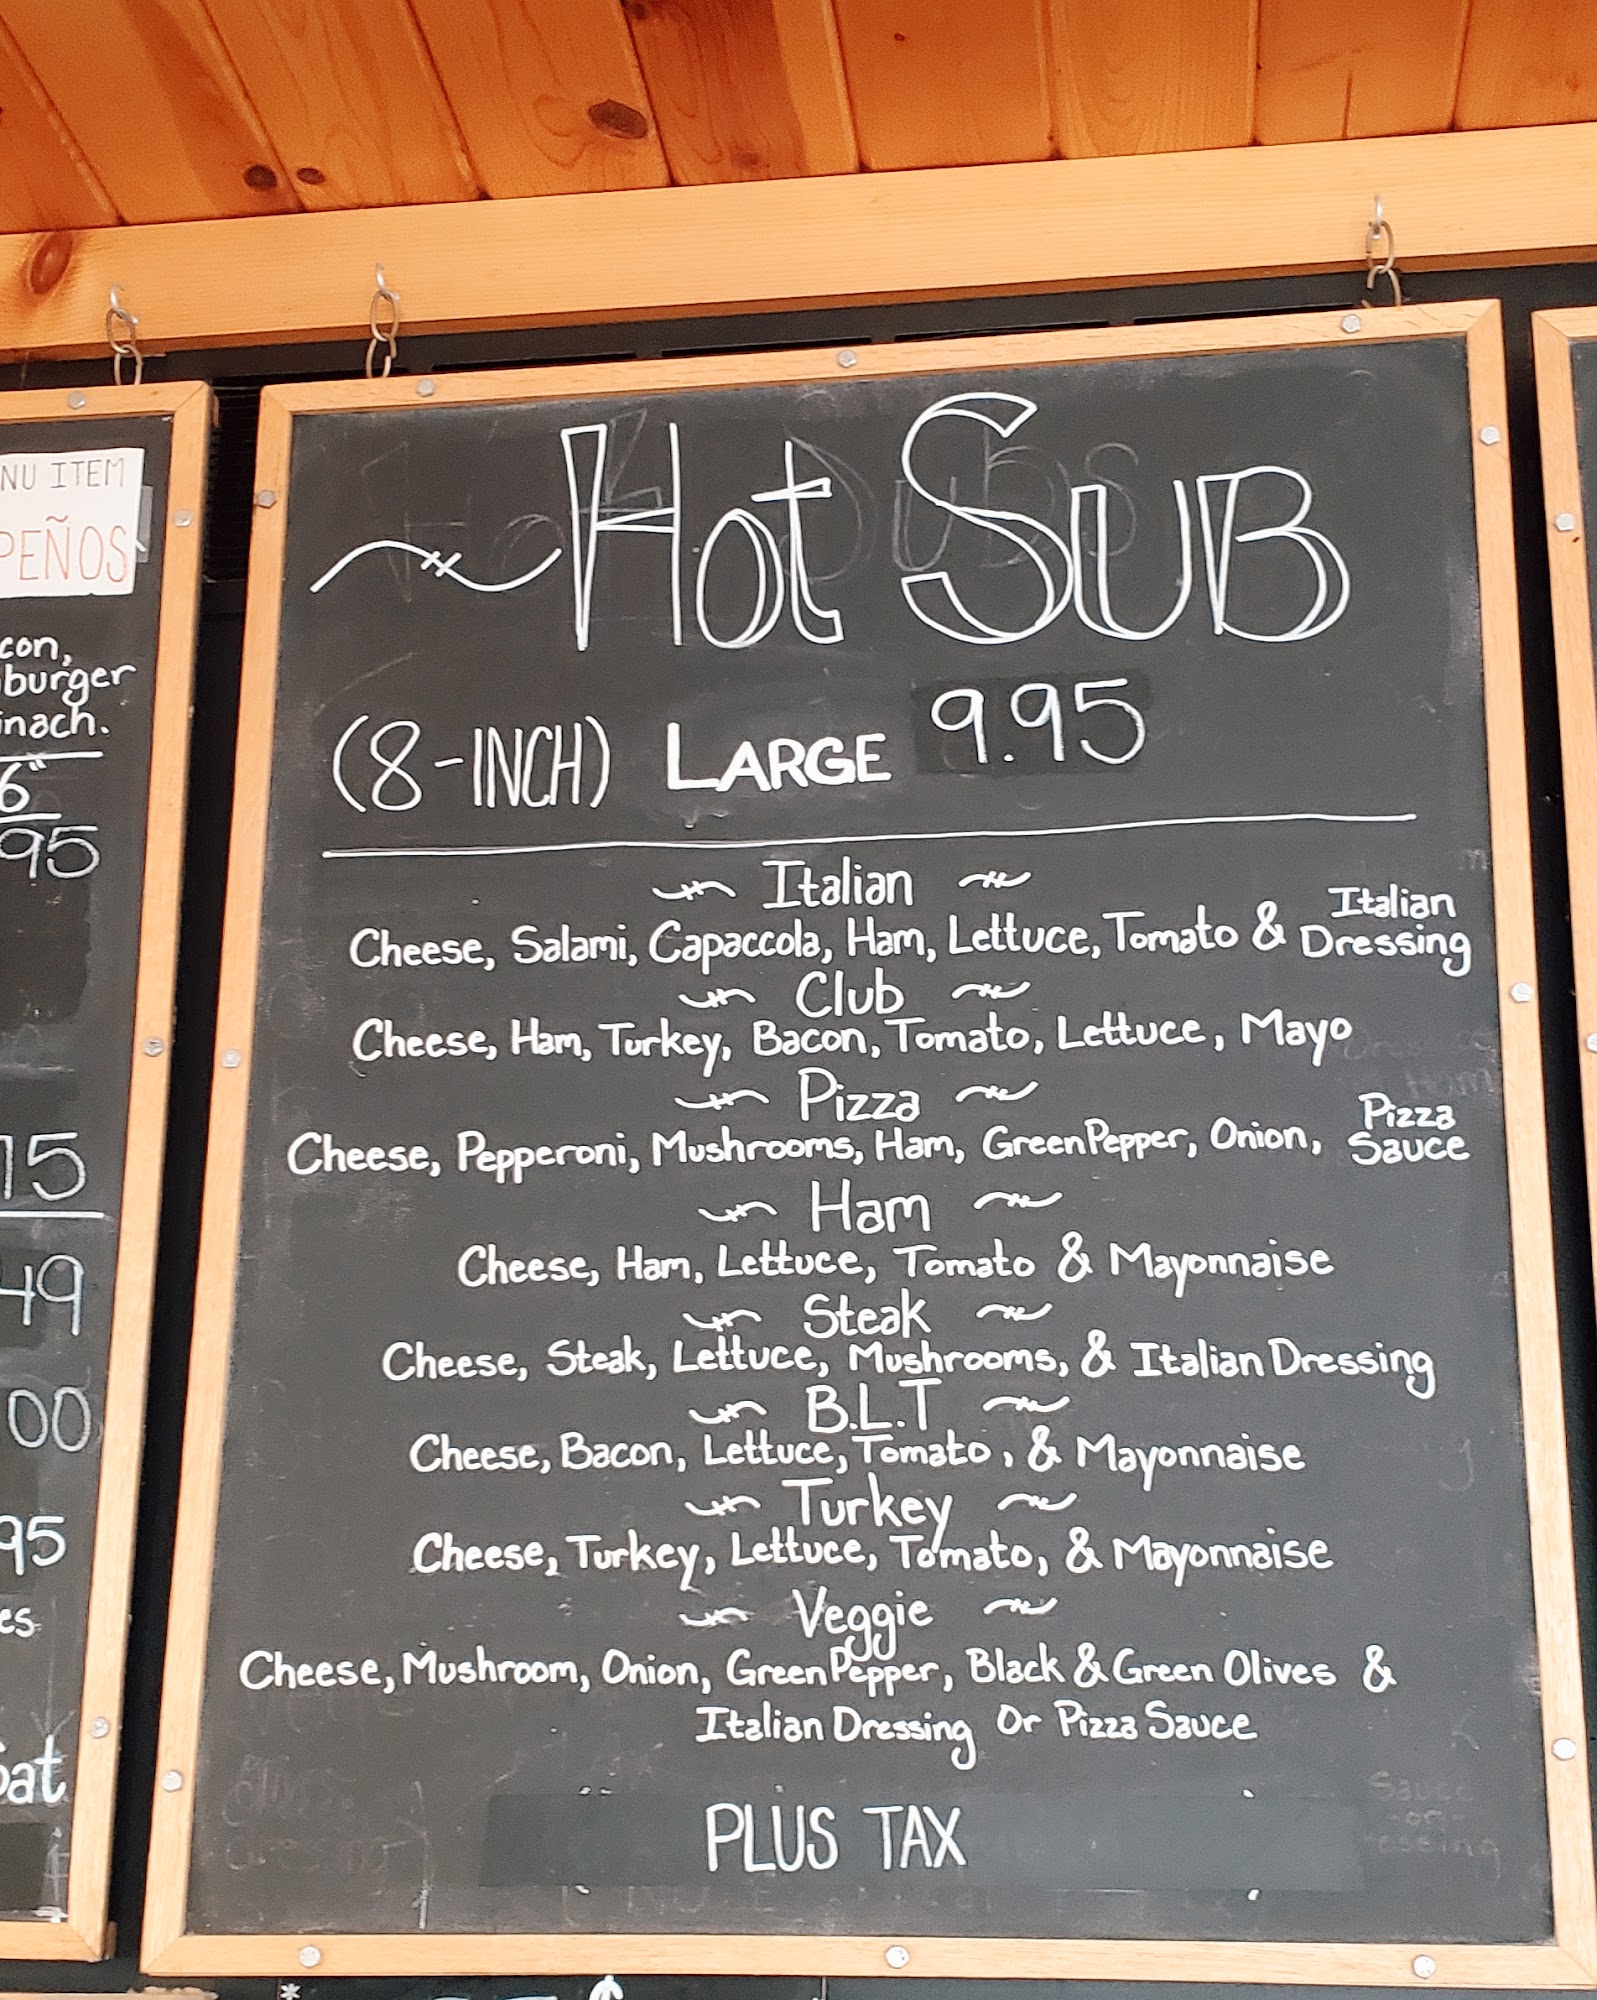 NU ITEM
PEÑOS
con,
burger
inach.
6"
95
15
49
00
95
es
at
~Hot SUB
(8-INCH) LARGE 9.95
Italian
Cheese, Salami, Capaccola, Ham, Lettuce, Tomato & Italian Dressing
Club
Cheese, Ham, Turkey, Bacon, Tomato, Lettuce, Mayo
Pizza
Cheese, Pepperoni, Mushrooms, Ham, Green Pepper, Onion, Pizza Sauce
Ham
Cheese, Ham, Lettuce, Tomato & Mayonnaise
Steak
Cheese, Steak, Lettuce, Mushrooms, & Italian Dressing
B.L.T
Cheese, Bacon, Lettuce, Tomato, & Mayonnaise
Turkey
Cheese, Turkey, Lettuce, Tomato, & Mayonnaise
Veggie
Cheese, Mushroom, Onion, Green Pepper, Black & Green Olives &
Italian Dressing Or Pizza Sauce
PLUS TAX